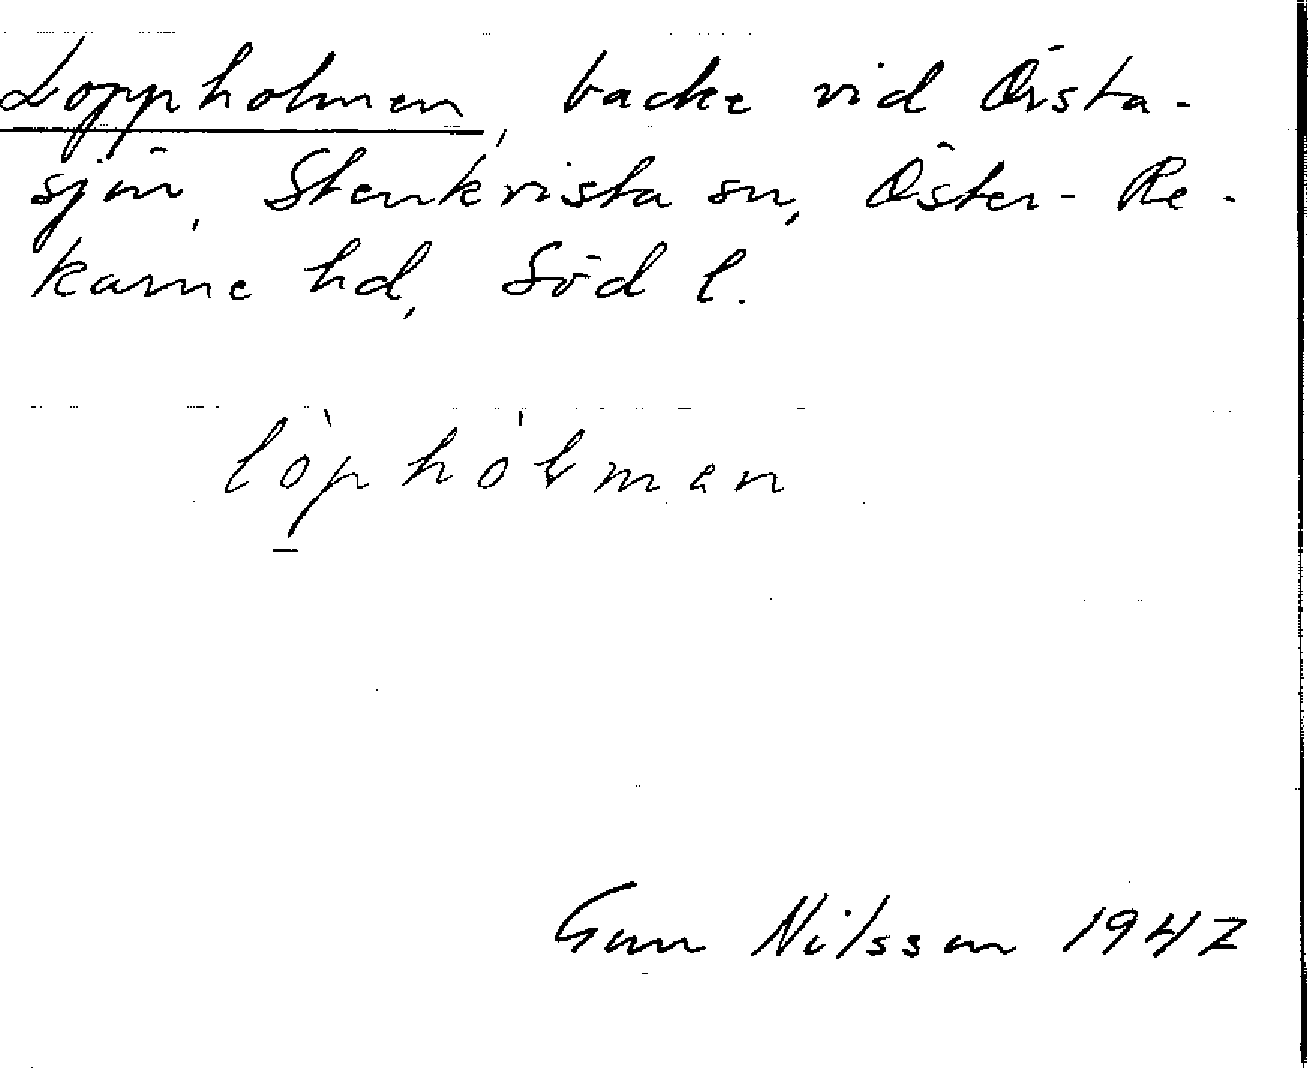 Loppholmen, backe vid Örsta-
sjön, Stenkvista sn, Öster-Re-
karne hd, Söd l.
lòp̱hólmen
Gun Nilsson 1947